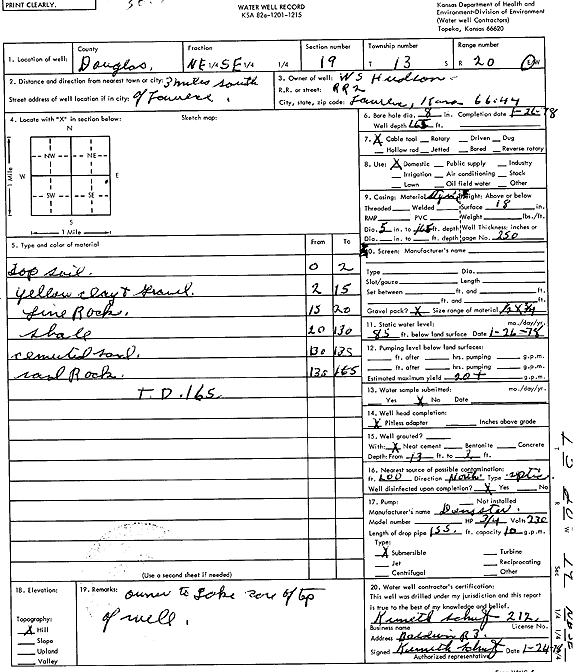 PRINT CLEARLY.
WATER WELL RECORD
KSA 82a-1201-1215
Kansas Department of Health and
Environment-Division of Environment
(Water well Contractors)
Topeka, Kansas 66620
1. Location of well: County Douglas, Fraction NE 1/4 SE 1/4 1/4 Section number 19 Township number T 13 S Range number R 20 E/W
2. Distance and direction from nearest town or city: 3 miles south
Street address of well location if in city: of
3. Owner of well: W S Hudson
R.R. or street: RR2
City, state, zip code:
4. Locate with "X" in section below: Sketch map:
N
NW NE
W E
SW SE
S
1 Mile
1 Mile
5. Type and color of material From To
Top soil. 0 2
yellow clay & gravel. 2 15
Lime Rock. 15 20
shale 20 130
cemented sand. 130 135
sand Rock. 135 165
T.D. 165.
(Use a second sheet if needed)
6. Bore hole dia. 8 in. Completion date 1-26-78
Well depth 165 ft.
7. X Cable tool Rotary Driven Dug
Hollow rod Jetted Bored Reverse rotary
8. Use: X Domestic Public supply Industry
Irrigation Air conditioning Stock
Lawn Oil field water Other
9. Casing: Material Height: Above or below
Threaded Welded Surface 18 in.
RMP PVC Weight lbs./ft.
Dia. 5 in. to 165 ft. depth Wall Thickness: inches or
Dia. in. to ft. depth gage No. 250
10. Screen: Manufacturer's name
Type Dia.
Slot/gauze Length
Set between ft. and ft.
ft. and ft.
Gravel pack? X Size range of material
11. Static water level: mo./day/yr.
85 ft. below land surface Date 1-26-78
12. Pumping level below land surfaces:
ft. after hrs. pumping g.p.m.
ft. after hrs. pumping g.p.m.
Estimated maximum yield 20+ g.p.m.
13. Water sample submitted: mo./day/yr.
Yes X No Date
14. Well head completion:
X Pitless adapter Inches above grade
15. Well grouted?
With: X Neat cement Bentonite Concrete
Depth: From 13 ft. to 3 ft.
16. Nearest source of possible contamination:
ft. 200 Direction North Type septic
Well disinfected upon completion? X Yes No
17. Pump: Not installed
Manufacturer's name Dempster.
Model number HP 3/4 Volts 230
Length of drop pipe 155. ft. capacity 10 g.p.m.
Type:
X Submersible Turbine
Jet Reciprocating
Centrifugal Other
18. Elevation:
Topography:
X Hill
Slope
Upland
Valley
19. Remarks: owner to take care of top
of well.
20. Water well contractor's certification:
This well was drilled under my jurisdiction and this report
is true to the best of my knowledge and belief.
Kenneth 212.
Business name License No.
Address Baldwin R3.
Signed Kenneth Date 1-26-78
Authorized representative